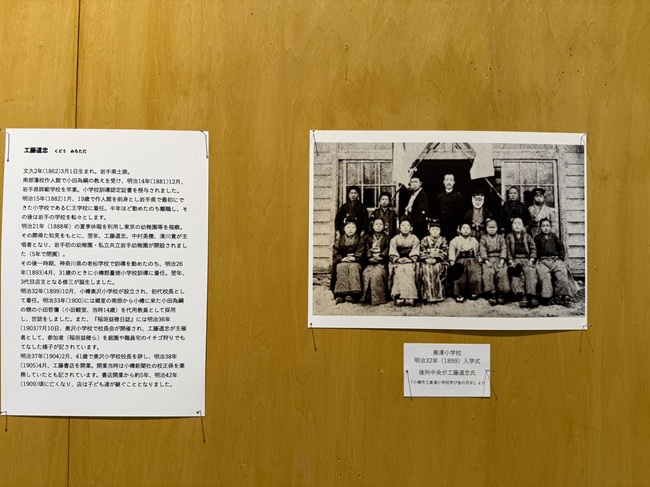 工藤道忠　くどう　みちただ
文久2年(1862)3月1日生まれ。岩手県士族。
南部藩校作人館で小田為綱の教えを受け、明治14年(1881)12月、
岩手県師範学校を卒業。小学校訓導認定証書を授与されました。
明治15年(1882)1月、19歳で作人館を前身とし岩手県で最初にで
きた小学校である仁王学校に着任。半年ほど勤めたのち離職し、そ
の後は岩手の学校を転々とします。
明治21年（1888年）の夏季休暇を利用し東京の幼稚園等を視察。
その際得た知見をもとに、翌年、工藤道忠、中村英樹、濱川寛が主
唱者となり、岩手初の幼稚園・私立共立岩手幼稚園が開設されまし
た（5年で閉園）。
その後一時期、神奈川県の老松学校で訓導を勤めたのち、明治26
年(1893)4月、31歳のときに小樽郡量徳小学校訓導に着任。翌年、
3代目店主となる修三が誕生しました。
明治32年(1899)10月、小樽奥沢小学校が設立され、初代校長とし
て着任。明治33年(1900)には郷里の南部から小樽に来た小田為綱
の甥の小田哲彌（小田観螢、当時14歳）を代用教員として採用
し、世話をしました。また、『稲垣益穂日誌』には明治36年
(1903)7月10日、奥沢小学校で校長会が開催され、工藤道忠が主催
者として、参加者（稲垣益穂ら）を庭園や職員宅のイチゴ狩りでも
てなした様子が記されています。
明治37年(1904)2月、41歳で奥沢小学校校長を辞し、明治38年
(1905)4月、工藤書店を開業。開業当時は小樽新聞社の校正係を兼
務していたとも記されています。書店開業から約5年、明治42年
(1909)頃に亡くなり、店は子ども達が継ぐこととなりました。
奥澤小学校
明治32年（1899）入学式
後列中央が工藤道忠氏
『小樽市立奥澤小学校学び舎の百年』より